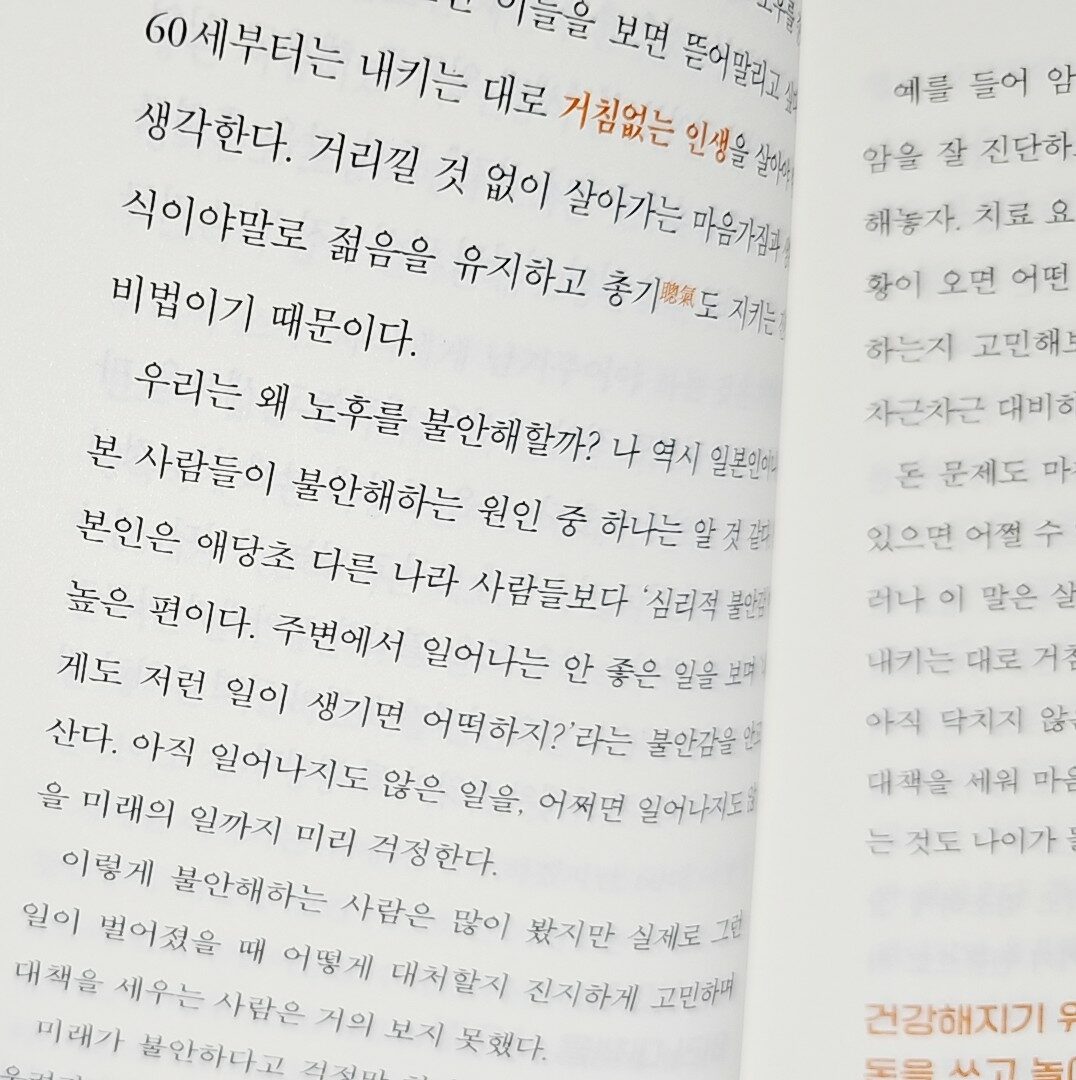 이들을 보면 뜯어말리고
60세부터는 내키는 대로 거침없는 인생을 살아야
생각한다. 거리낄 것 없이 살아가는 마음가짐과
식이야말로 젊음을 유지하고 총기聰氣도 지키는
비법이기 때문이다.
우리는 왜 노후를 불안해할까? 나 역시 일본인이
본 사람들이 불안해하는 원인 중 하나는 알 것 같다
본인은 애당초 다른 나라 사람들보다 ‘심리적 불안감
높은 편이다. 주변에서 일어나는 안 좋은 일을 보며
게도 저런 일이 생기면 어떡하지?’라는 불안감을
산다. 아직 일어나지도 않은 일을, 어쩌면 일어나지도
을 미래의 일까지 미리 걱정한다.
이렇게 불안해하는 사람은 많이 봤지만 실제로 그런
일이 벌어졌을 때 어떻게 대처할지 진지하게 고민하며
대책을 세우는 사람은 거의 보지 못했다.
미래가 불안하다고 걱정만
예를 들어 암
암을 잘 진단하
해놓자. 치료 요
황이 오면 어떤
하는지 고민해보
차근차근 대비하
돈 문제도 마
있으면 어쩔 수
러나 이 말은 살
내키는 대로 거침
아직 닥치지 않은
대책을 세워 마음
는 것도 나이가
건강해지기 위
돈을 쓰고 놀